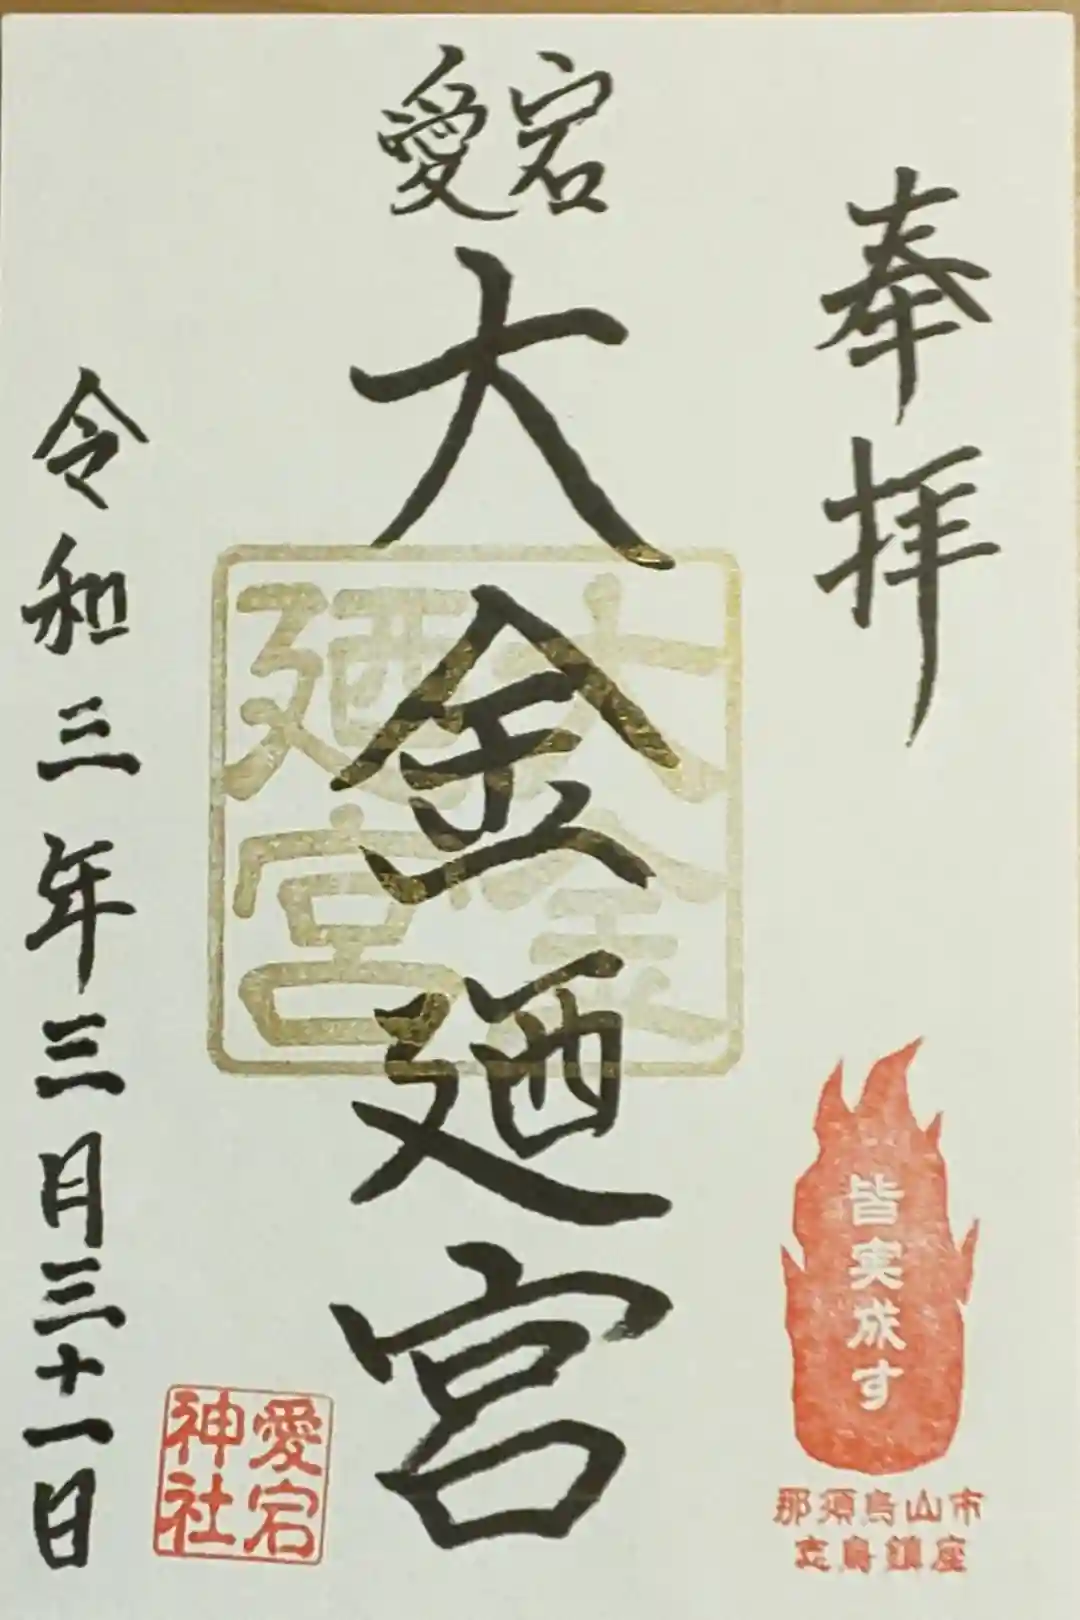 奉拝
皆実成す
那須烏山市
志鳥鎮座
愛宕
大金廻宮
大金
廻宮
愛宕
神社
令和三年三月三十一日